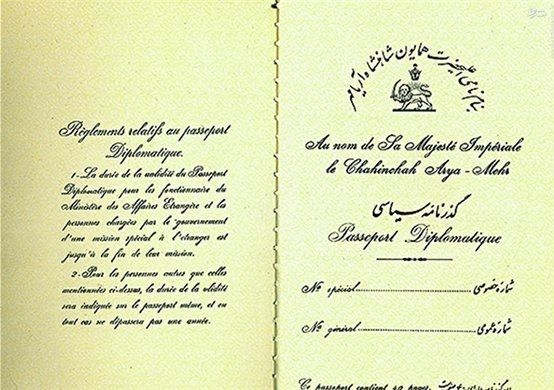 Règlements relatifs au passeport
Diplomatique.
1.-La durée de la validité du Passeport
Diplomatique pour les fonctionnaire du
Ministère des Affaires Etrangère et la
personnes chargées par le gouvernement
d'une mission spécial à l'étranger est
jusqu'à la fin de leur mission.
2.-Pour les personnes autres que celles
mentionnées ci-dessus, la durée de la vlidité
sera indiquée sur le passeport même, et en
tout cas ne dépassera pas une année.
بنام نامی اعلیحضرت همایون شاهنشاه آریامهر
Au nom de Sa Majesté Impériale
le Chahinchah Arya-Mehr
گذرنامه سیاسی
Passeport Diplomatique
Nº spécial شماره خصوصی
Nº général شماره عمومی
Ce passeport contient 40 pages.